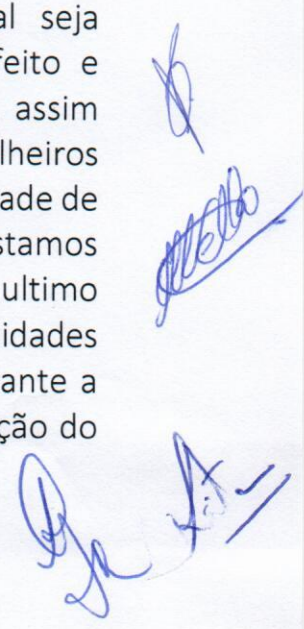 al seja
feito e
assim
lheiros
ade de
stamos
ultimo
idades
ante a
ção do